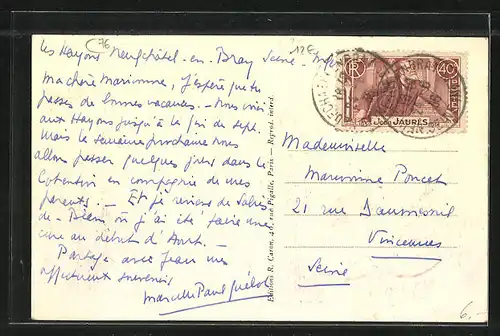 76
12E
Les Hayons Neufchâtel-en-Bray Seine-
Ma chère Marianne, J'espère que tu
passes de bonnes vacances. - Nous
aux Hayons jusqu'à la fin de sept.
Mais la semaine prochaine nous
allons passer quelques jours dans le
Cotentin en compagnie de mes
parents. - Et je reviens de
où j'ai été faire une
cure au début d'Août. -
Partage avec Jean nos
affectueux souvenirs
Marcelle Paul
Editions R. Caron, 40, rue Pigalle, Paris - Reprod. interd.
RF
40c
JEAN JAURÈS
Mademoiselle
Marianne Poncet
21 rue Daumesnil
Vincennes
Seine
6.-